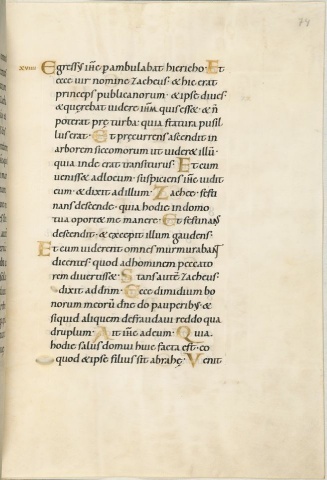 74
xviiii Egressus ihc perambulabat hiericho. Et
ecce uir nomine zacheus. & hic erat
princeps publicanorum. & ipse diues
& querebat uidere ihm quis esset. & ñ
poterat pre turba. quia statura pusil
lus erat. Et precurrens ascendit in
arborem siccomorum ut uider& illū.
quia inde erat transiturus. Et cum
uenisset ad locum. suspiciens ihc uidit
eum. & dixit ad illum. Zachee. festi
nans descende. quia hodie in domo
tua oport& me manere. Et festinans
descendit. & excepit illum gaudens.
Et cum uiderent omnes murmurabant
dicentes. quod ad hominem peccato
rem diuertisset. Stans autē zacheus.
dixit ad dnm. Ecce dimidium bo
norum meorū dne do pauperibus. &
si quid aliquem defraudaui reddo qua
druplum. Ait ihc ad eum. Quia
hodie salus domui huic facta est. eo
quod & ipse filius sit abrahę. Venit